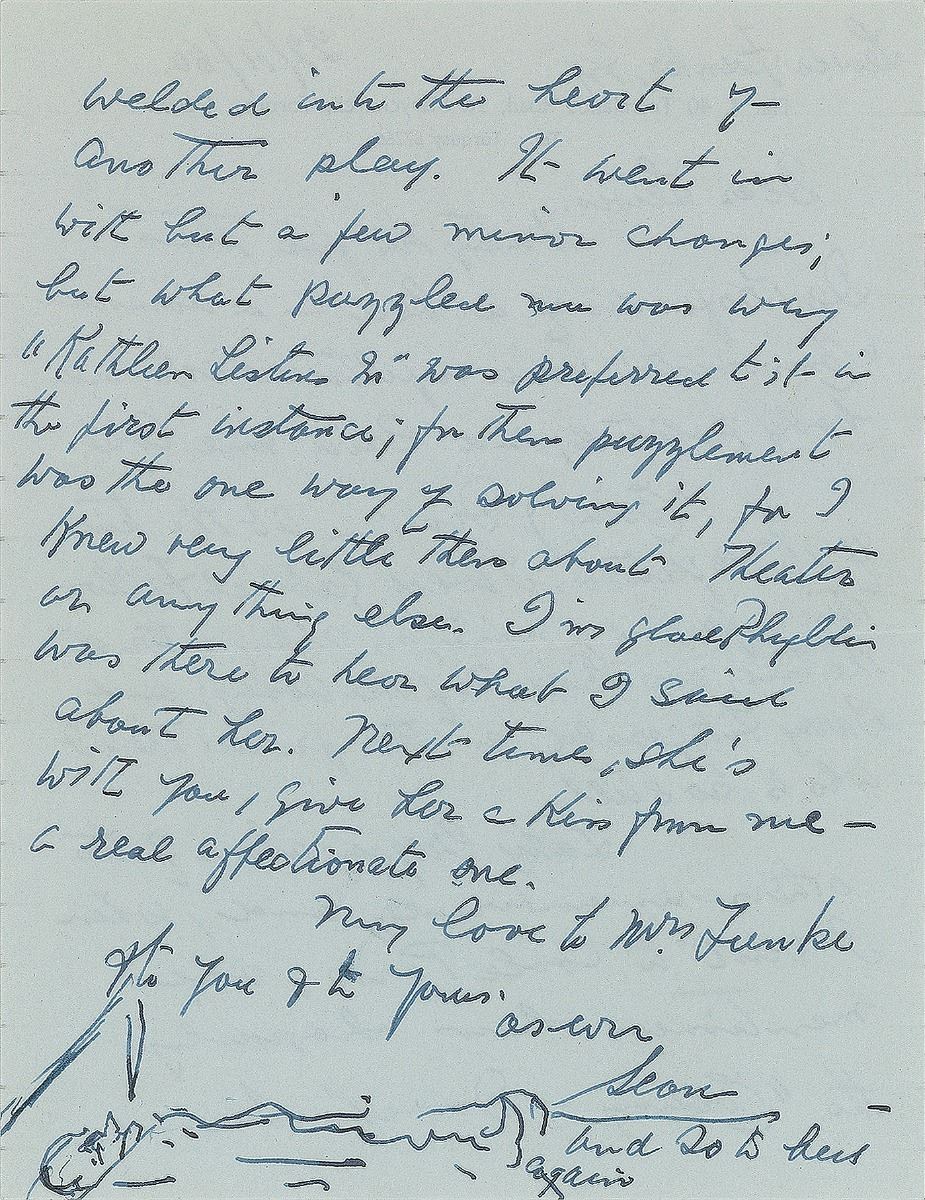 welded into the heart of
another play. It went in
with but a few minor changes;
but what puzzled me was why
"Kathleen Listens In" was preferred to it in
the first instance; for then puzzlement
was the one way of solving it, for I
knew very little then about Theater
or anything else. I'm glad Phyllis
was there to hear what I said
about her. Next time, she's
with you, give her a kiss from me —
a real affectionate one.
My love to Mrs Funke
to you & to yours.
as ever
Sean
and so to bed
again